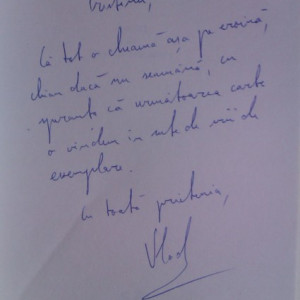 Cristina,
Că tot o cheamă așa pe eroină,
chiar dacă nu seamănă, cu
speranța că următoarea carte
o vindem în sute de mii de
exemplare.
Cu toată prietenia,
Vlad